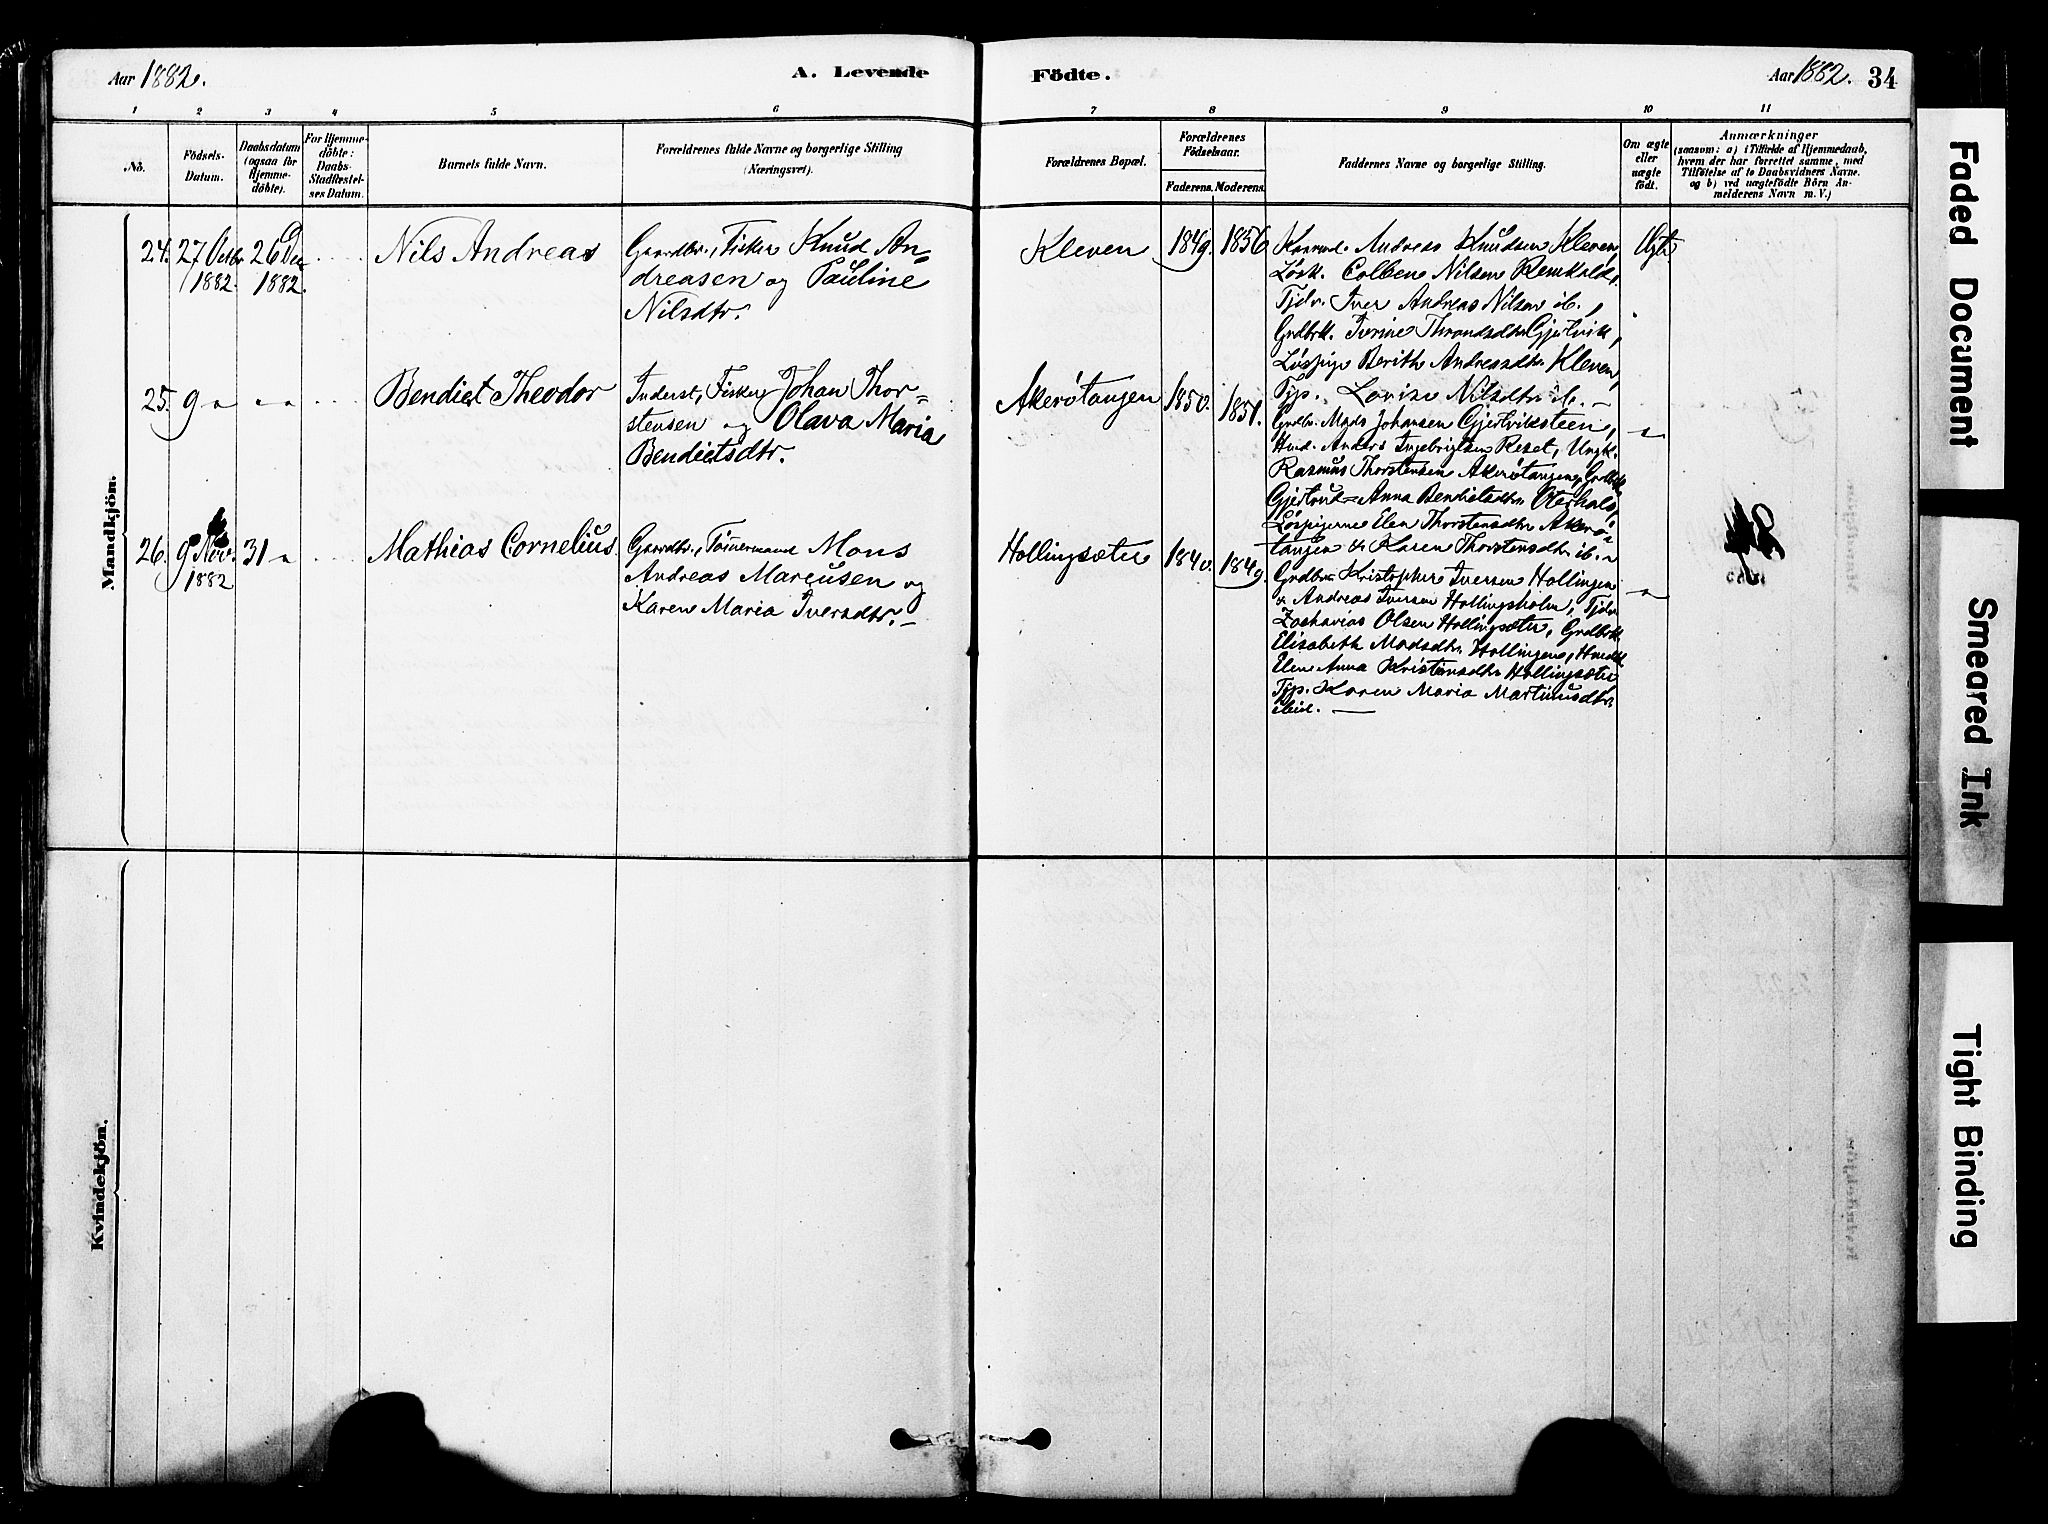 Aar 1882.
A. Levende
Födte.
Aar 1882. 34
1 2 3 4 5 6 7 8 9 10 11
No.
Födsels-
Datum.
Daabsdatum
(ogsaa for
Hjemme-
döbte).
For Hjemme-
döbte:
Daabs-
Stadfæstel-
ses Datum.
Barnets fulde Navn.
Forældrenes fulde Navne og borgerlige Stilling
(Næringsvei).
Forældrenes Bopæl.
Forældrenes
Födselsaar.
Faderens. Moderens.
Faddernes Navne og borgerlige Stilling.
Om ægte
eller
uægte
födt.
Anmærkninger
(saasom: a) i Tilfælde af Hjemmedaab,
hvem der har forrettet samme, med
Tilföielse af to Daabsvidners Navne,
og b) ved uægtefödte Börn An-
melderens Navn m. V.)
Mandkjön.
24. 27 Octbr 1882. 26 Dec 1882.
Nils Andreas
Gaardbr., Fisker Knud An-
dreasen og Pauline
Nilsdtr.
Kleven
1849. 1856
Andreas Knudsen Kleven,
Løsk. Colben Nilsen
Tjdr. Iver Andreas Nilsen ib.,
Grdbrk. Iverine Throndsdtr Gjertvik,
Løspige Berith Andreasdtr Kleven,
Tjp. Lovise Nilsdtr ib. —
Ægte
25. 9 " " "
Bendict Theodor
Inderst, Fisker Johan Thor-
stensen og Olava Maria
Bendictsdtr.
Akerötangen
1850. 1851.
Grdbr. Mads Johansen Gjertviksteen,
Hmd. Anders Ingebrigtsen Reset, Ungk.
Rasmus Thorstensen Akerötangen, Grdbrk
Gjertrud Anna Bendictsdtr Oterhals,
Løspigerne Elen Thorstensdtr Akerö-
tangen & Karen Thorstensdtr ib. —
"
26. 9 Nov. 1882 31 "
Mathias Cornelius
Gaardbr., Tömmermand Mons
Andreas Marcusen og
Karen Maria Iversdtr. —
Hollingsæter
1840. 1849.
Grdbr. Kristopher Iversen Hollingen
& Andreas Iversen Hollingsholm, Tjdr
Zacharias Olsen Hollingsæter, Grdbrk
Elisabeth Madsdtr Hollingen, Hmdk
Elen Anna Kristensdtr Hollingsæter
Tjp. Karen Maria Martinusdtr
ibid. —
"
Kvindekjön.
Faded Document
Smeared Ink
Tight Binding